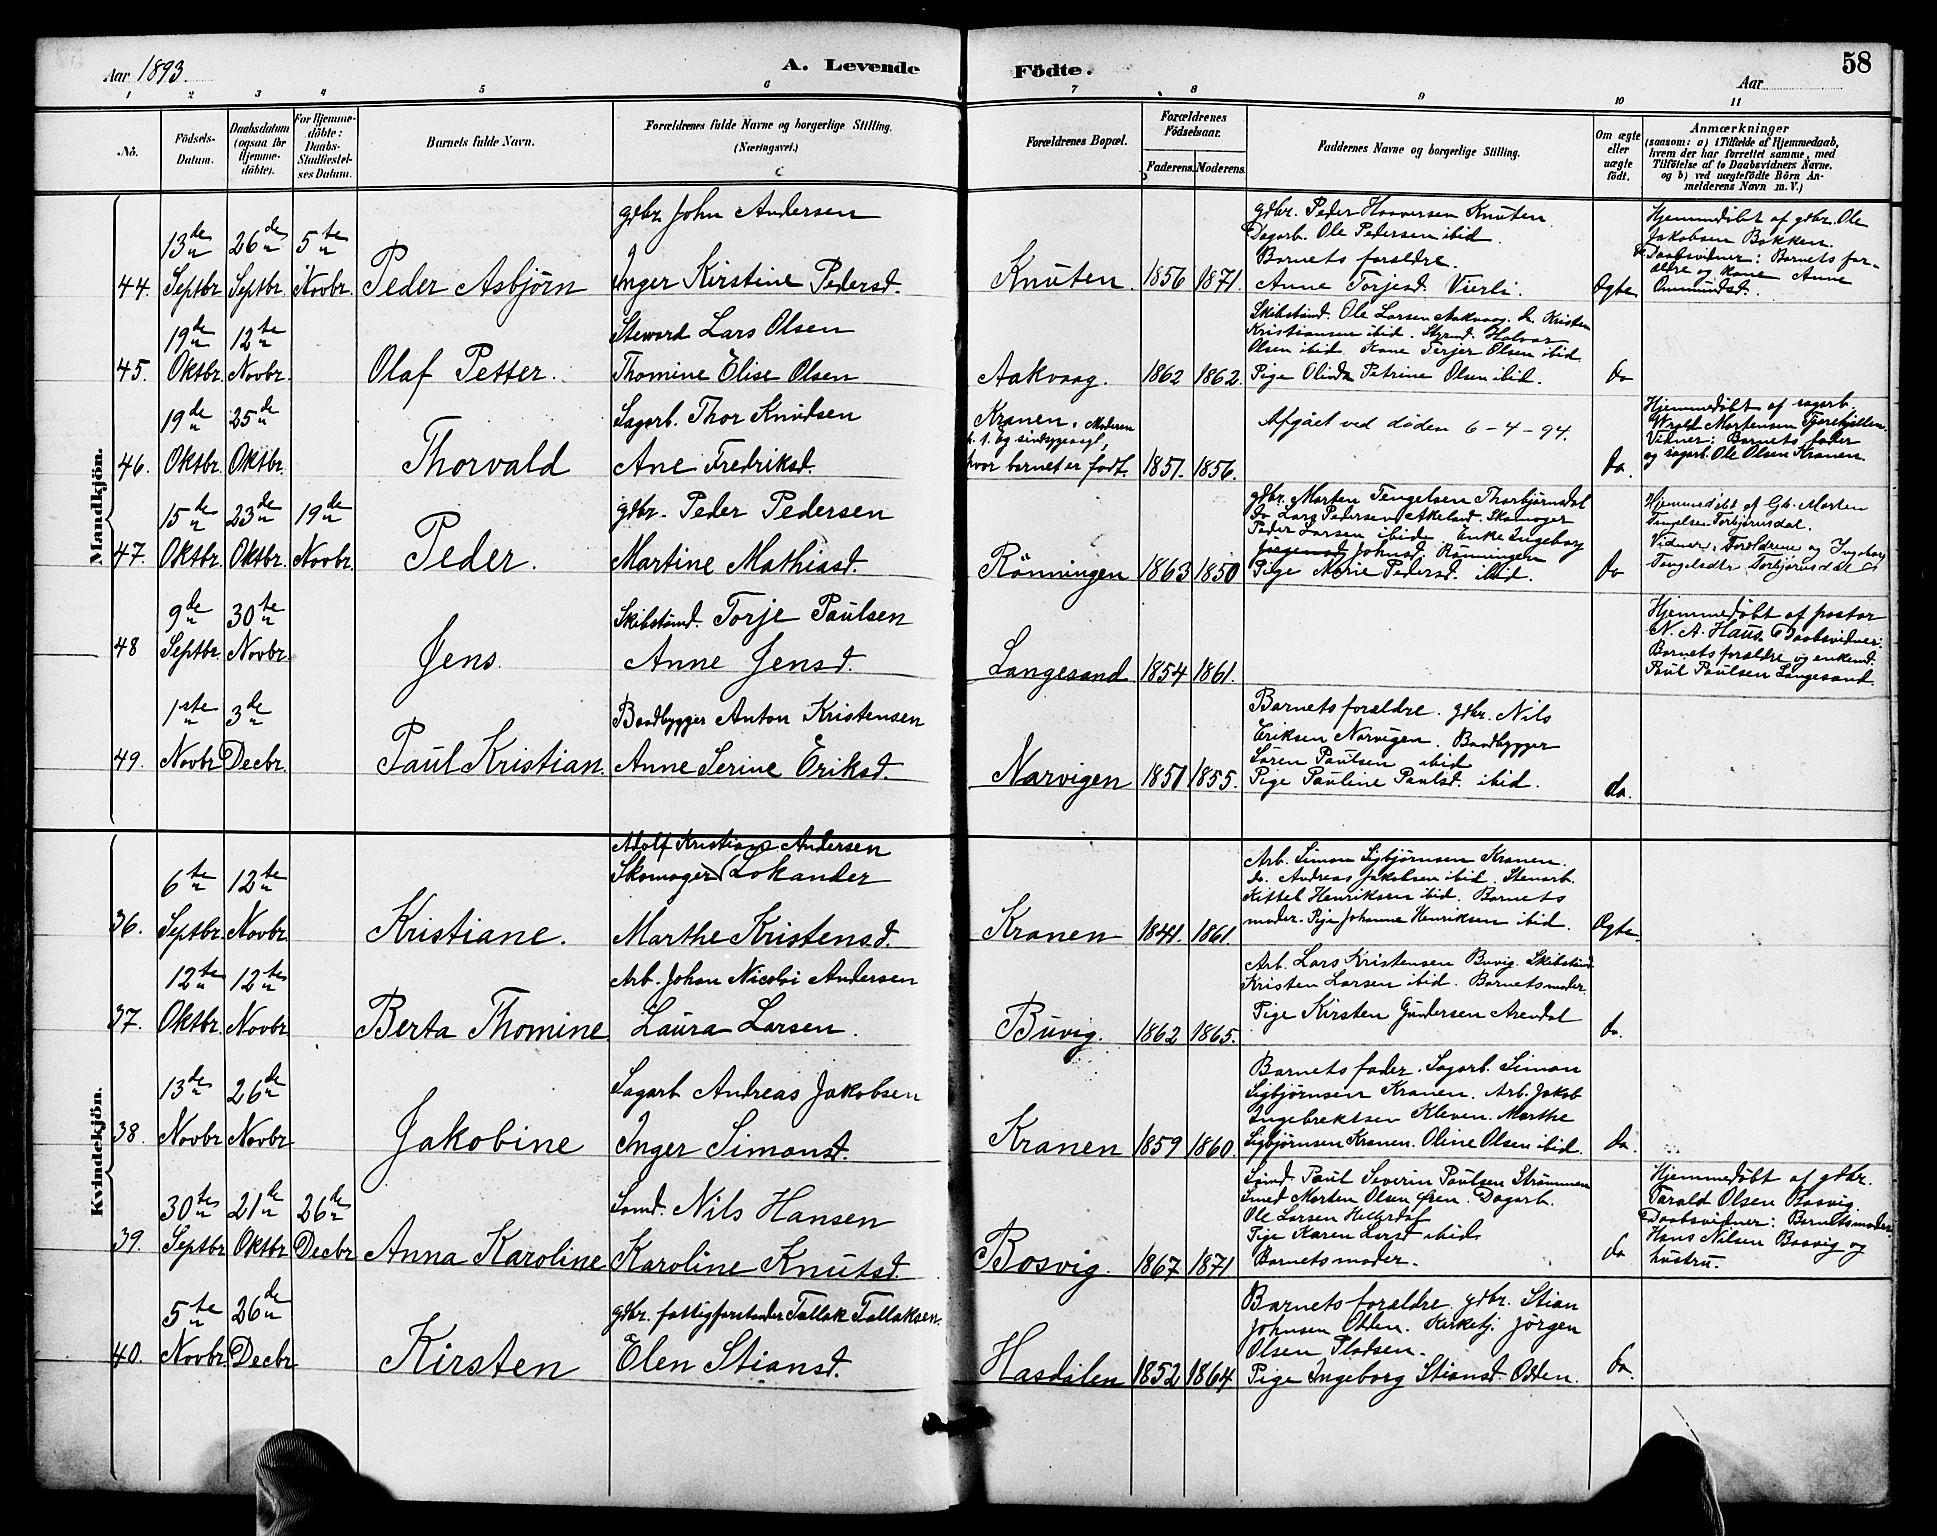 Aar 1893.
A. Levende Födte.
Aar
58
1 2 3 4 5 6 7 8 9 10 11
No.
Födsels-Datum.
Daabsdatum (ogsaa for Hjemme-döbte).
For Hjemme-döbte: Daabs-Stadfæstel-ses Datum.
Barnets fulde Navn.
Forældrenes fulde Navne og borgerlige Stilling. (Næringsvei.)
Forældrenes Bopæl.
Forældrenes Födselsaar.
Faderens. Moderens.
Faddernes Navne og borgerlige Stilling.
Om ægte eller uægte födt.
Anmærkninger
(saasom: a) i Tilfælde af Hjemmedaab,
hvem der har forrettet samme, med
Tilföielse af to Daabsvidners Navne.
og b) ved uægtefödte Börn An-
melderens Navn m. V.)
Mandkjön.
44. 13de Septbr. 26de Septbr. 5te Novbr. Peder Asbjörn
gdbr. John Andersen
Inger Kirstine Pedersd.
Knuten 1856 1871
gdbr. Peder Haaversen Knuten.
Dagarb. Ole Pedersen ibid.
Barnets forældre.
Anne Torjesd. Vierli.
Ægte
Hjemmedöbt af gdbr. Ole
Jakobsen Bakken.
Daabsvidner: Barnets for-
ældre og kone Anne
Ommundsd.
45. 19de Oktbr. 12te Novbr. Olaf Petter.
Steward Lars Olsen
Thomine Elise Olsen
Aakvaag. 1862 1862.
Skibstömd. Ole Larsen Aakvaag. do. Kristen
Kristiansen ibid. Styrmd. Halvor
Olsen ibid. Kone Terjer Olsen ibid.
Pige Olinda Petrine Olsen ibid.
do
46. 19de Oktbr. 25de Oktbr. Thorvald
Sagarb. Thor Knudsen
Ane Fredriksd.
Kranen. Moderen
p. t. Eg sindsygeasyl,
hvor barnet er födt. 1851. 1856.
Afgået ved døden 6-4-94.
do.
Hjemmedöbt af sagarb.
Wrold Mortensen Fjærekjillen.
Vidner: Barnets fader
og sagarb. Ole Olsen Kranen
47. 15de Oktbr. 23de Oktbr. 19de Novbr. Peder.
gdbr. Peder Pedersen
Martine Mathiasd.
Rönningen 1863 1850
gdbr. Morten Tengelsen Thorbjørnsdal
do Lars Pedersen Akeland. Skomager
Peder Larsen ibid. Enke Ingeborg
Johnsd. Rönningen
Pige Marie Pedersd. ibid.
do
Hjemmedöbt af Gb. Morten
Tengelsen Torbjørnsdal.
Vidner: Forældrene og Ingeborg
Tengelsdtr Torbjørnsdal
48 9de Septbr. 30te Novbr. Jens.
Skibstömd. Torje Paulsen
Anne Jensd.
Langesand 1854 1861.
Hjemmedöbt af pastor
N. A. Haus. Daabsvidner:
Barnets forældre og enkemd.
Paul Paulsen Langesand.
49. 1ste Novbr. 3de Decbr. Paul Kristian.
Baadbygger Anton Kristensen
Anne Serine Eriksd.
Narvigen 1851 1855.
Barnets forældre. gdbr. Nils
Eriksen Narvigen. Baadbygger
Sören Paulsen ibid
Pige Pauline Paulsd. ibid.
do.
Kvindekjön.
36. 6te Septbr. 12te Novbr. Kristiane.
Adolf Kristians Andersen
Skomager Lokander
Marthe Kristensd.
Kranen 1841. 1861.
Arb. Simon Sigbjörnsen Kranen.
do. Andreas Jakobsen ibid. Stenarb.
Kittel Henriksen ibid. Barnets
moder. Pige Johanne Henriksen ibid.
Ægte.
37. 12te Oktbr. 12te Novbr. Berta Thomine
Arb. Johan Nicolai Andersen
Laura Larsen.
Buvig. 1862 1865.
Arb. Lars Kristensen Buvig. Skibstömd.
Kristen Larsen ibid. Barnets moder.
Pige Kirsten Gundersen Arendal
do.
38. 13de Novbr. 26de Novbr. Jakobine
Sagarb Andreas Jakobsen
Inger Simonsd.
Kranen 1859 1860.
Barnets fader. Sagarb. Simon
Sigbjörnsen Kranen. Arb. Jakob
Ingebrektsen Kleven. Marthe
Sigbjörnsen Kranen. Oline Olsen ibid.
do.
39. 30te Septbr. 21de Oktbr. 26de Decbr. Anna Karoline
Sömd. Nils Hansen
Karoline Knutsd.
Bosvig. 1867 1871
Sömd. Paul Severin Paulsen Strömmen
Smed Morten Olsen Øren. Dagarb.
Ole Larsen Hellerdal
Pige Karen Larsd ibid.
Barnets moder.
do
Hjemmedöbt af gdbr.
Tarald Olsen Bosvig.
Daabsvidner: Barnets moder.
Hans Nilsen Bosvig og
hustru.
40. 5te Novbr. 26de Decbr. Kirsten
gdbr. fattigforstander Tallak Tallaksen.
Elen Stiansd.
Hasdalen 1852 1864
Barnets forældre. gdbr. Stian
Johnsen Odden. Kirketj. Jörgen
Olsen Fladsen.
Pige Ingeborg Stiansd. Odden.
do.